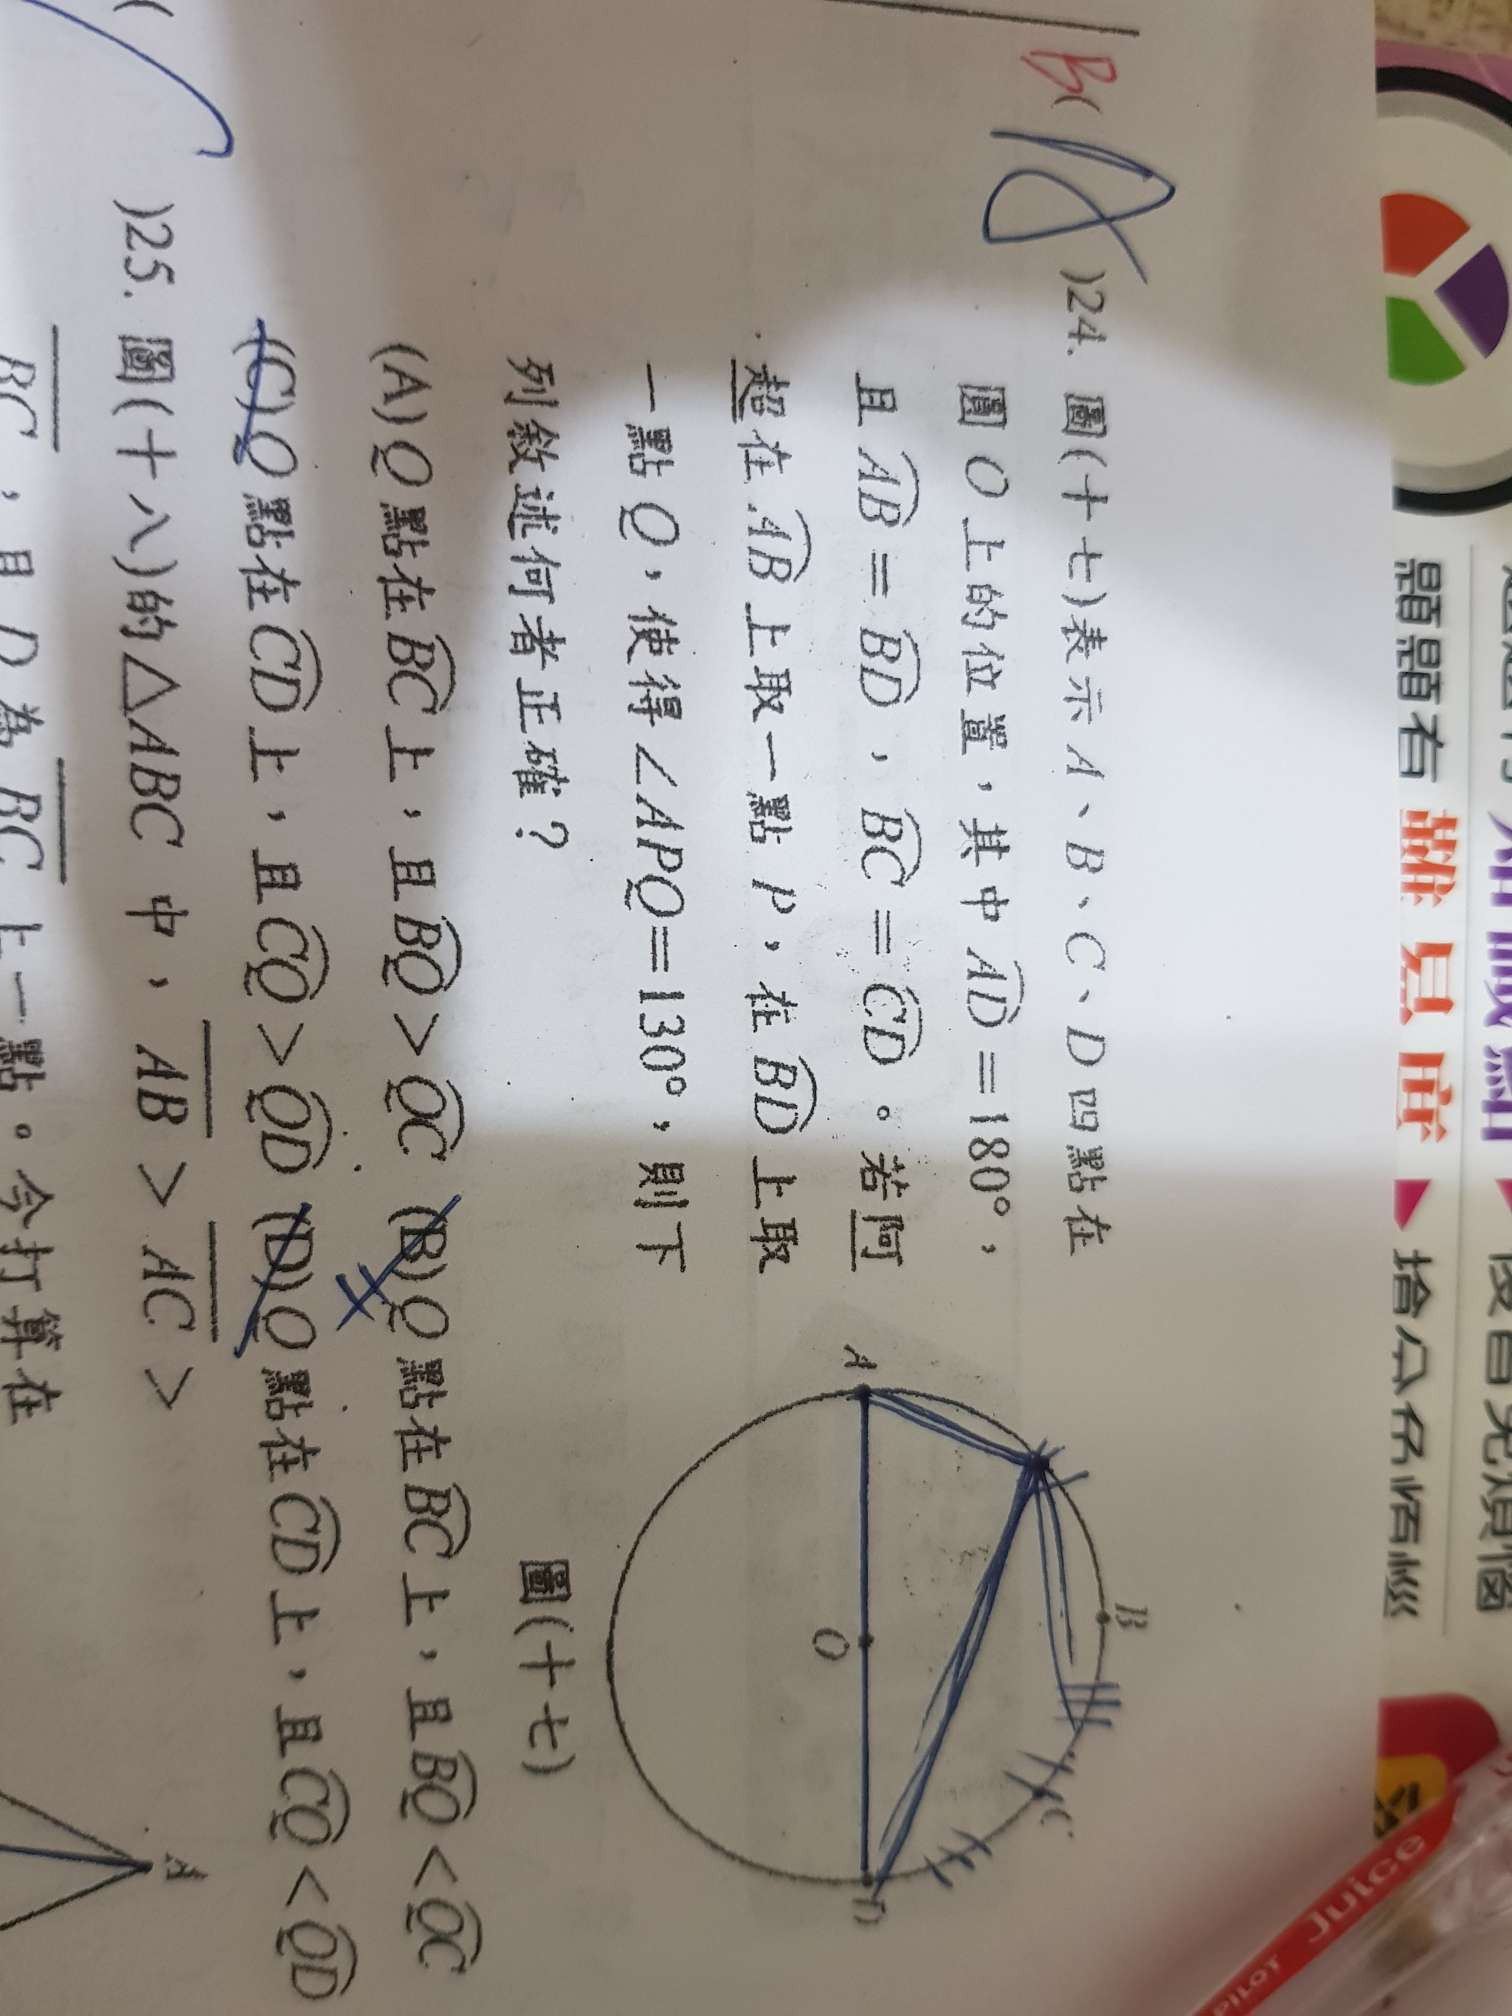 B(
)24. 圖(十七)表示A、B、C、D四點在
圓O上的位置，其中AD=180°，
且AB=BD，BC=CD。若阿
超在AB上取一點P，在BD上取
一點Q，使得∠APQ=130°，則下
列敘述何者正確？
(A)Q點在BC上，且BQ>QC (B)Q點在BC上，且BQ<QC
(C)Q點在CD上，且CQ>QD (D)Q點在CD上，且CQ<QD
A
B
C
D
O
圖(十七)
(
)25. 圖(十八)的△ABC中，AB>AC>
BC，且D為BC上一點。今打算在
A
題題有
難
搶分
PILOT Juice